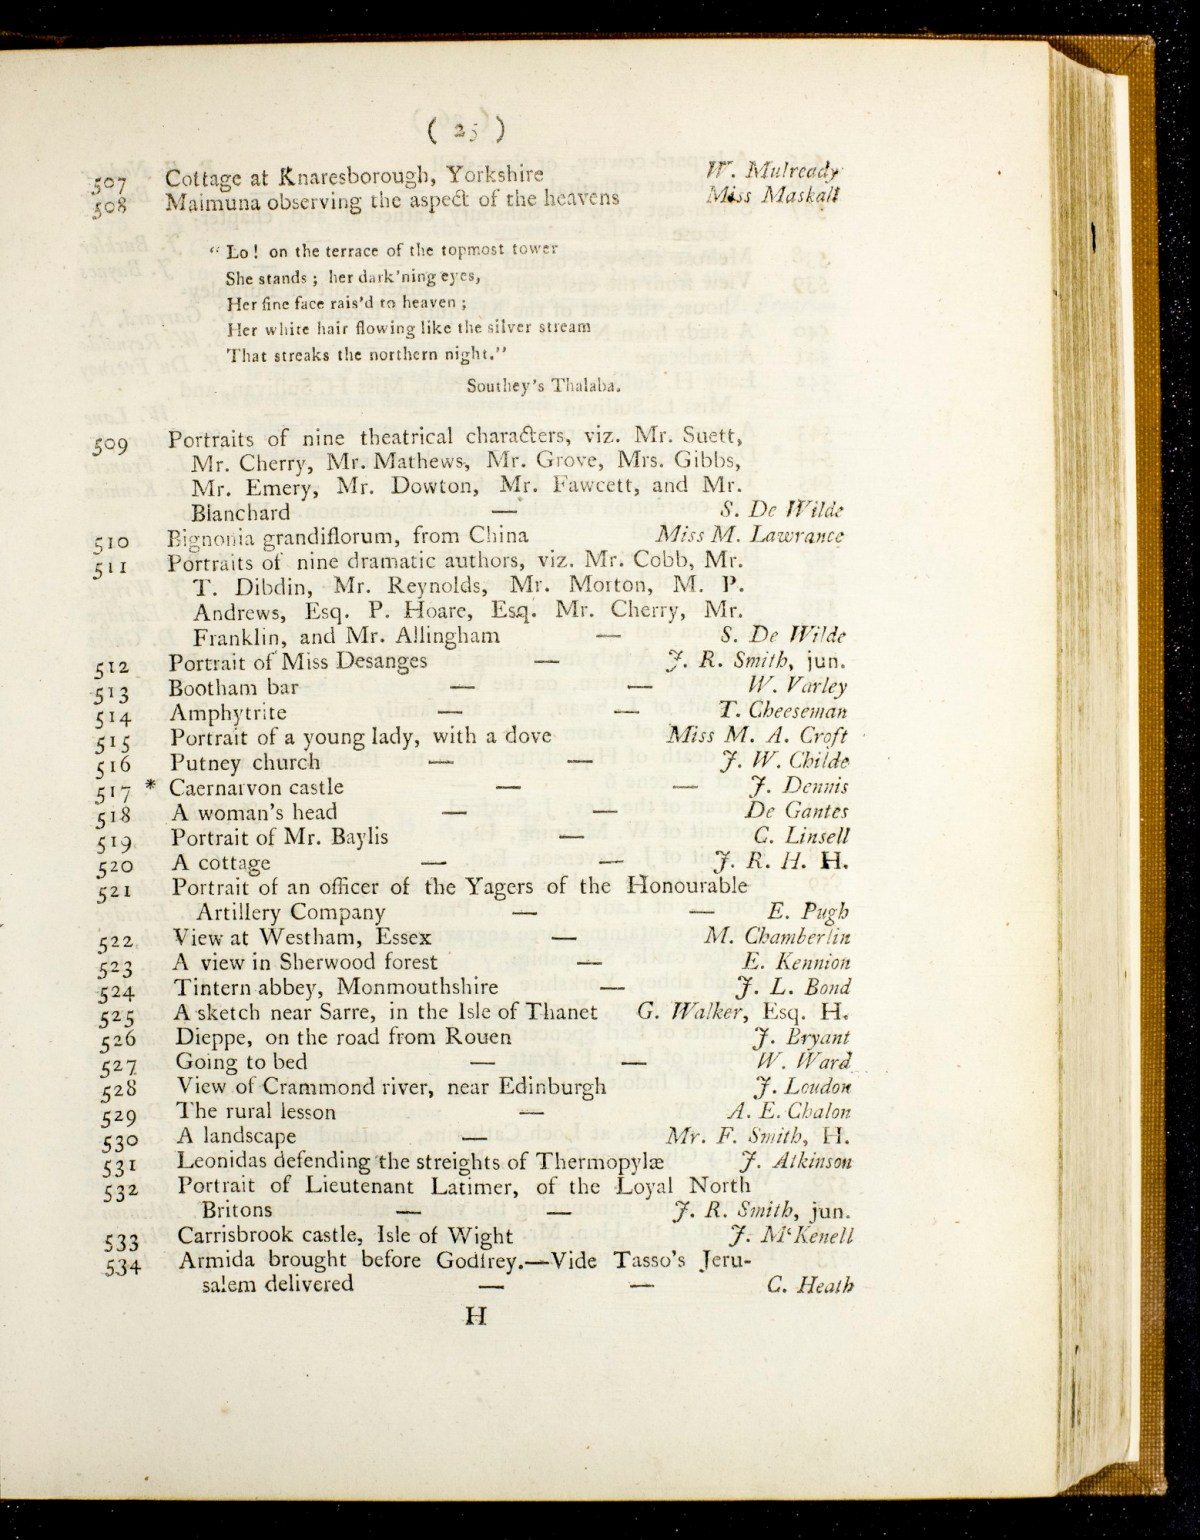 ( 25 )
507 Cottage at Knaresborough, Yorkshire W. Mulready
508 Maimuna observing the aspect of the heavens Miss Maskall
“ Lo! on the terrace of the topmost tower
She stands; her dark'ning eyes,
Her fine face rais'd to heaven;
Her white hair flowing like the silver stream
That streaks the northern night.”
Southey's Thalaba.
509 Portraits of nine theatrical characters, viz. Mr. Suett,
Mr. Cherry, Mr. Mathews, Mr. Grove, Mrs. Gibbs,
Mr. Emery, Mr. Dowton, Mr. Fawcett, and Mr.
Blanchard — S. De Wilde
510 Bignonia grandiflorum, from China Miss M. Lawrance
511 Portraits of nine dramatic authors, viz. Mr. Cobb, Mr.
T. Dibdin, Mr. Reynolds, Mr. Morton, M. P.
Andrews, Esq. P. Hoare, Esq. Mr. Cherry, Mr.
Franklin, and Mr. Allingham — S. De Wilde
512 Portrait of Miss Desanges — J. R. Smith, jun.
513 Bootham bar — — W. Varley
514 Amphytrite — — T. Cheeseman
515 Portrait of a young lady, with a dove Miss M. A. Croft
516 Putney church — — J. W. Childe
517 * Caernarvon castle — — J. Dennis
518 A woman's head — — De Gantes
519 Portrait of Mr. Baylis — C. Linsell
520 A cottage — — J. R. H. H.
521 Portrait of an officer of the Yagers of the Honourable
Artillery Company — — E. Pugh
522 View at Westham, Essex — M. Chamberlin
523 A view in Sherwood forest — E. Kennion
524 Tintern abbey, Monmouthshire — J. L. Bond
525 A sketch near Sarre, in the Isle of Thanet G. Walker, Esq. H.
526 Dieppe, on the road from Rouen J. Bryant
527 Going to bed — — W. Ward
528 View of Crammond river, near Edinburgh J. Loudon
529 The rural lesson — A. E. Chalon
530 A landscape — Mr. F. Smith, H.
531 Leonidas defending the streights of Thermopylæ J. Atkinson
532 Portrait of Lieutenant Latimer, of the Loyal North
Britons — — J. R. Smith, jun.
533 Carrisbrook castle, Isle of Wight J. McKenell
534 Armida brought before Godfrey.—Vide Tasso's Jeru-
salem delivered — — C. Heath
H